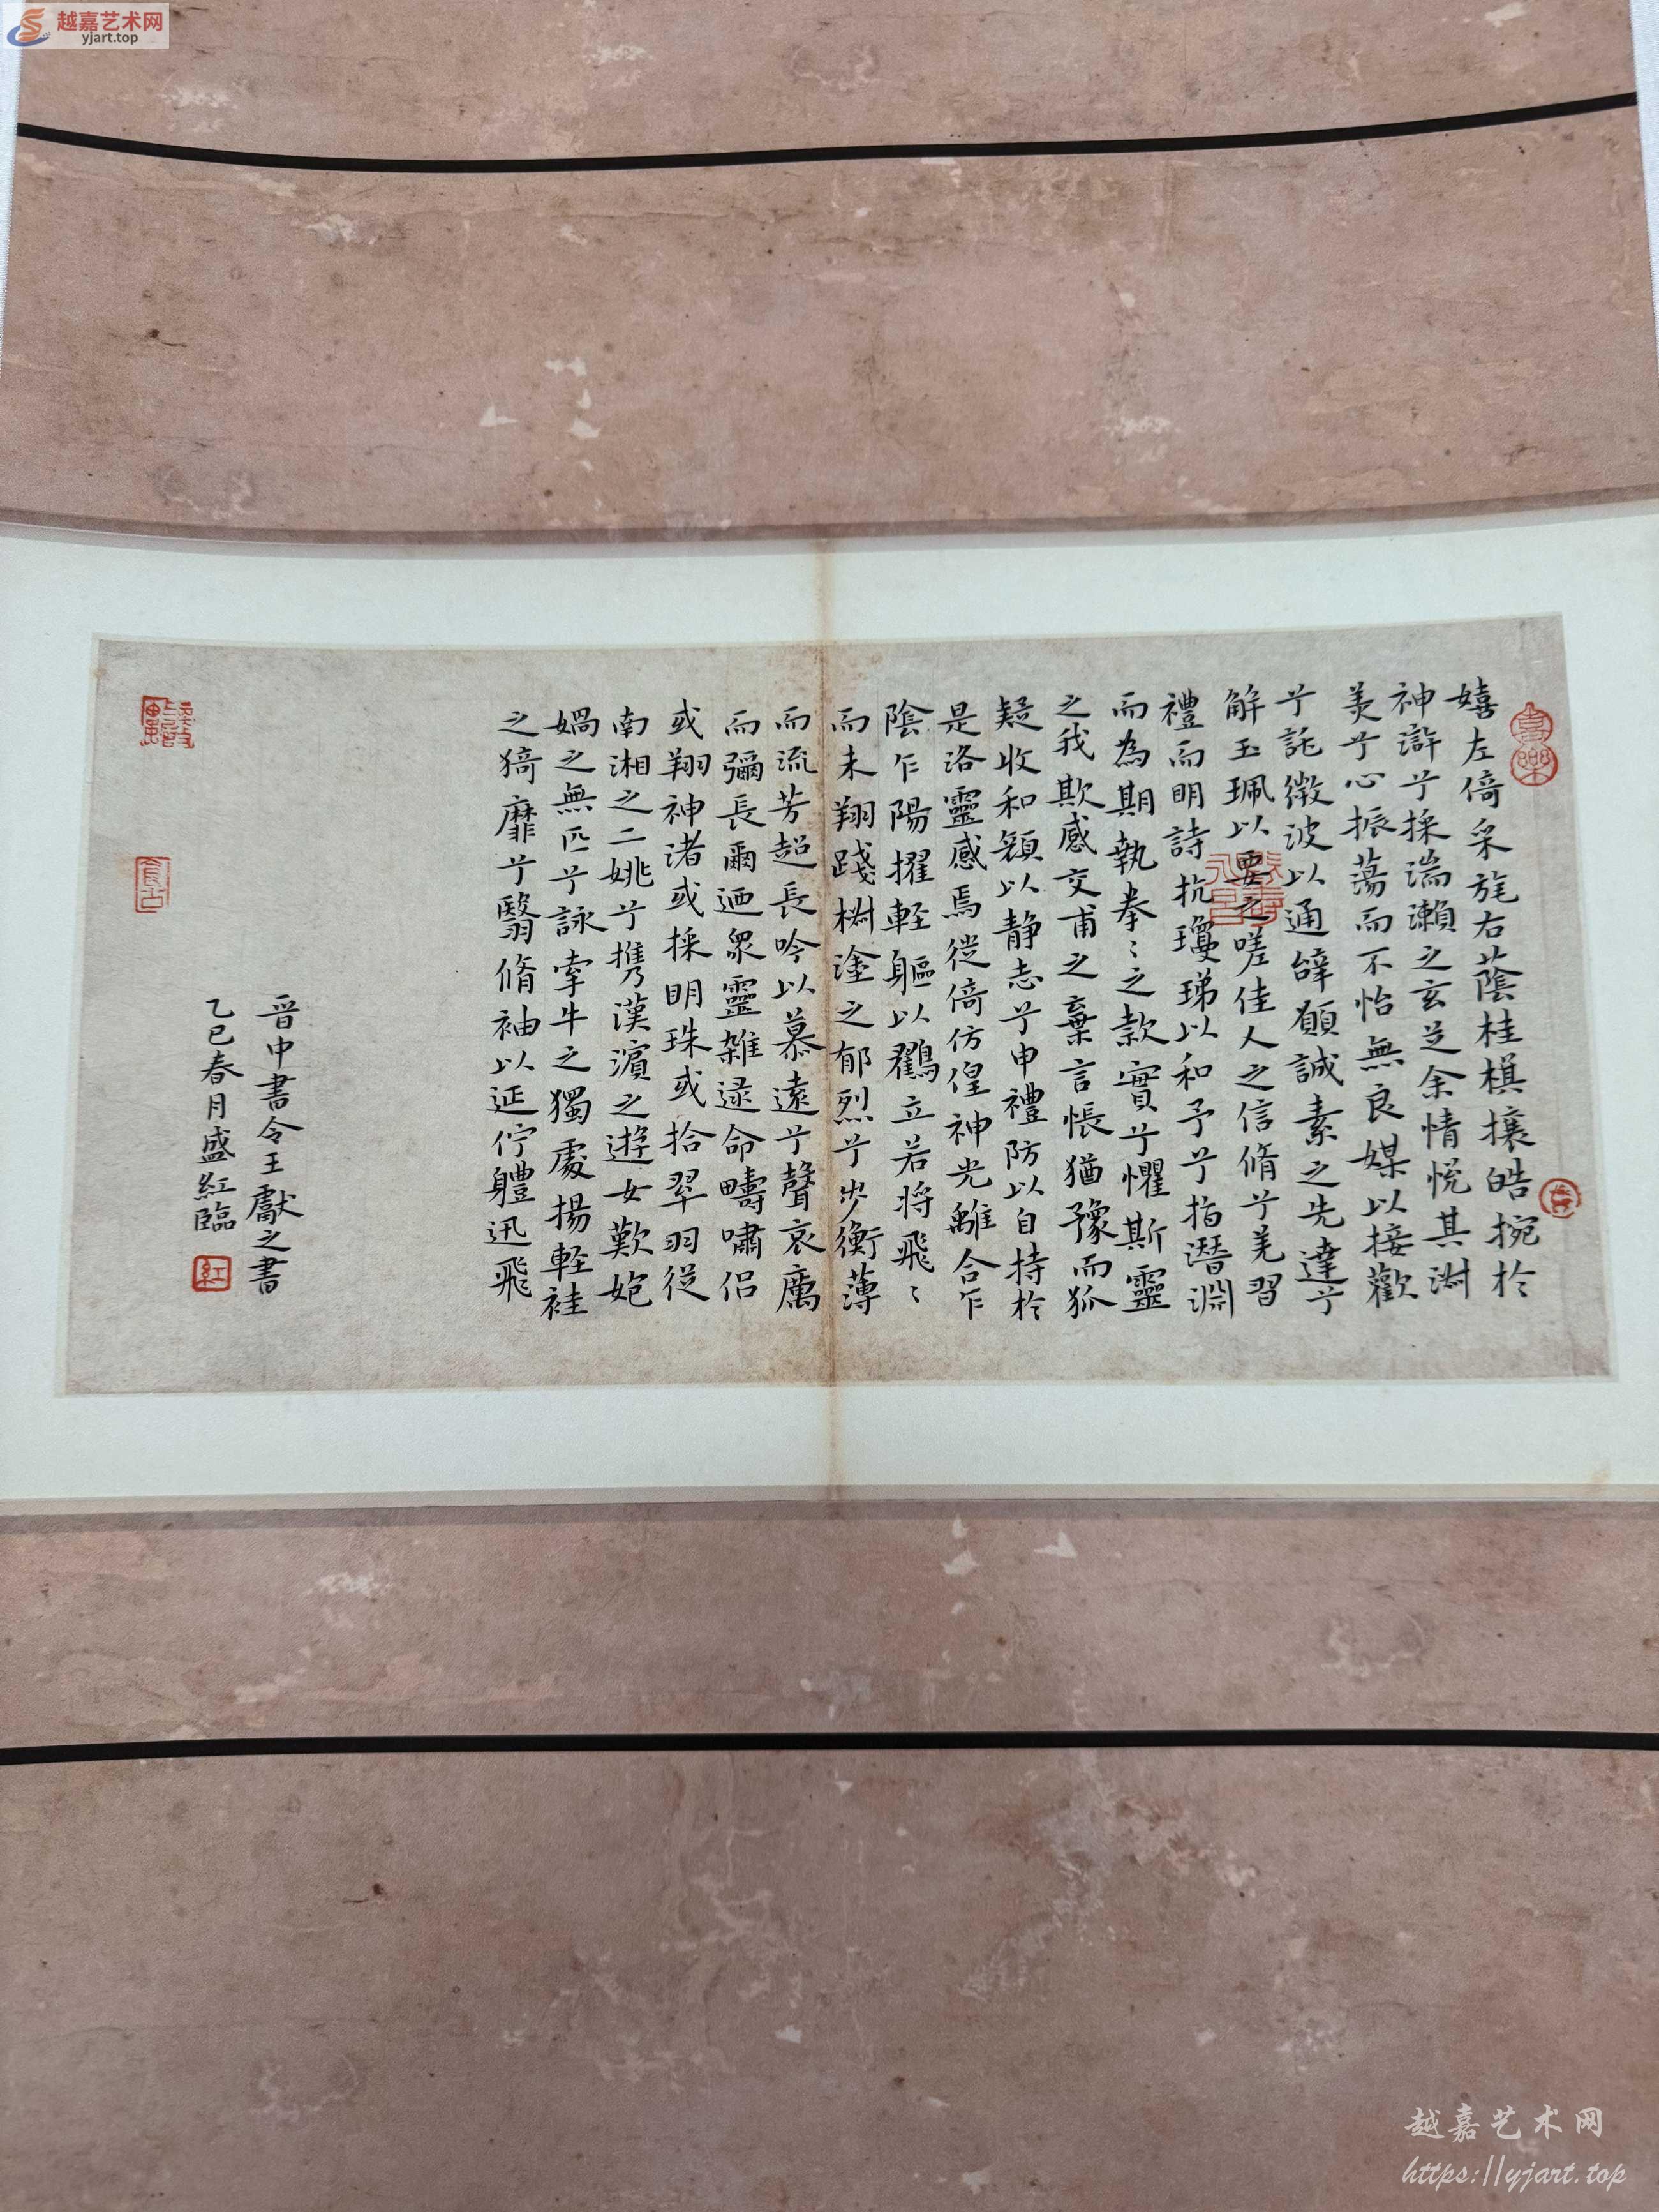 越嘉艺术网
yjart.top
嬉左倚采旄右蔭桂棋攘皓捥於
神滸兮採湍瀨之玄芝余情悅其淋
美兮心振蕩而不怡無良媒以接歡
兮託微波以通辭願誠素之先達兮
解玉珮以要之嗟佳人之信脩兮羌習
禮而明詩抗瓊珶以和予兮指潛淵
而為期執拳〻之款實兮懼斯靈
之我欺感交甫之棄言悵猶豫而狐
疑收和顏以静志兮申禮防以自持於
是洛靈感焉從倚仿偟神光離合乍
陰乍陽擢輕軀以鸖立若将飛〻
而未翔踐椒塗之郁烈兮步衡薄
而流芳超長吟以慕遠兮聲哀厲
而彌長爾迺眾靈雜遝命疇嘯侶
或翔神渚或採明珠或拾翠羽從
南湘之二姚兮攜漢濵之遊女歎
媧之無匹兮詠牽牛之獨處揚輕袿
之猗靡兮翳脩袖以延佇軆迅飛
晋中書令王獻之書
乙巳春月盛紅臨
紅
越嘉艺术网
https://yjart.top